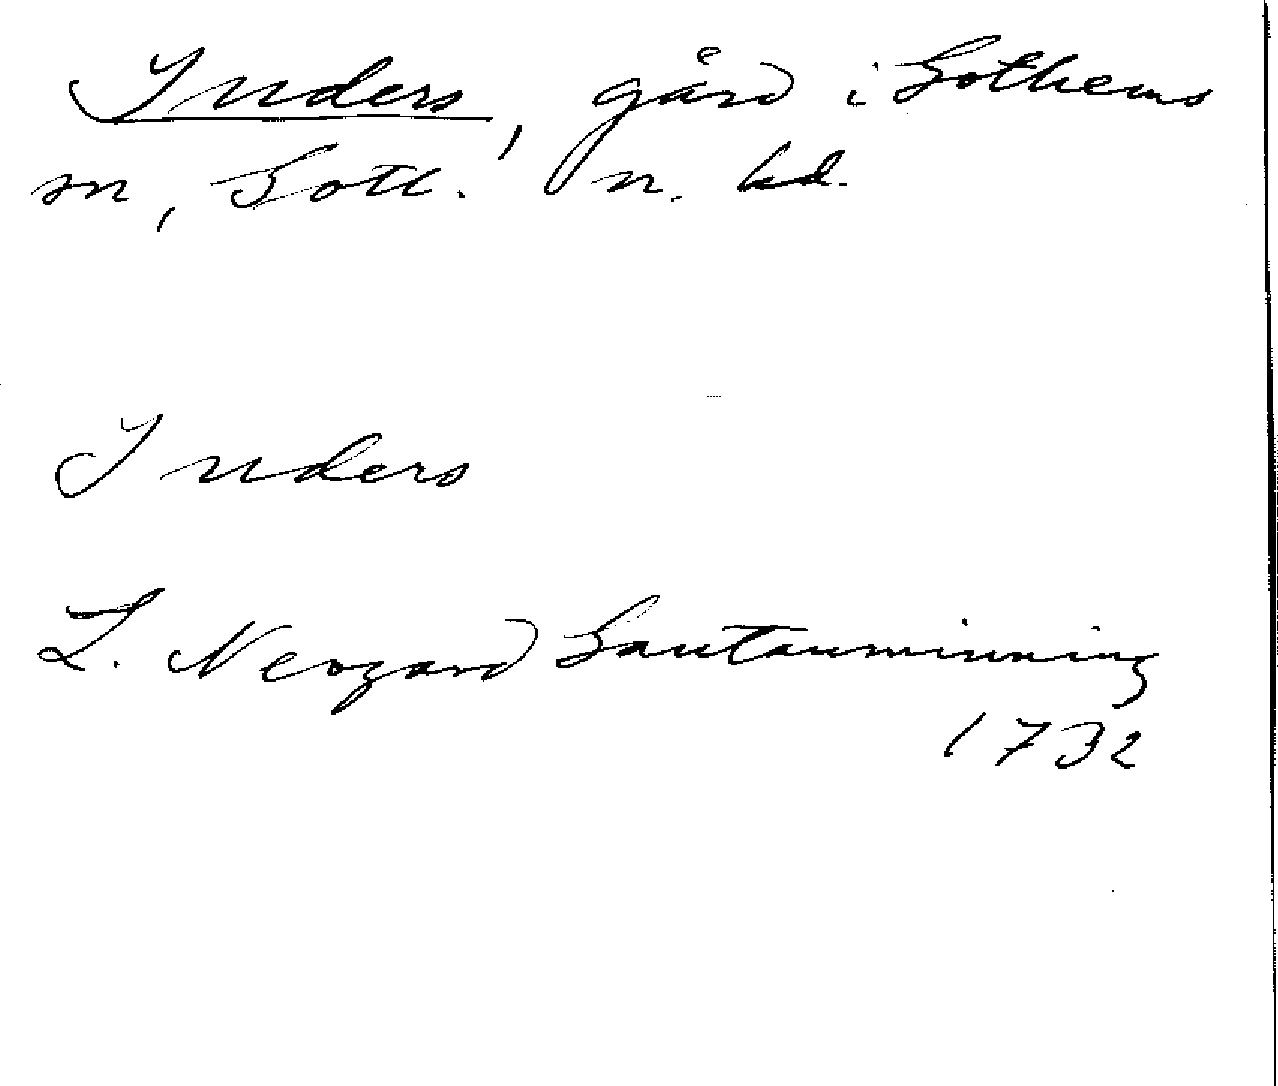 Inders, gård i Gothems
sn, Gotl. n. hd.
Inders
L. Neogard Gautauminning
1732